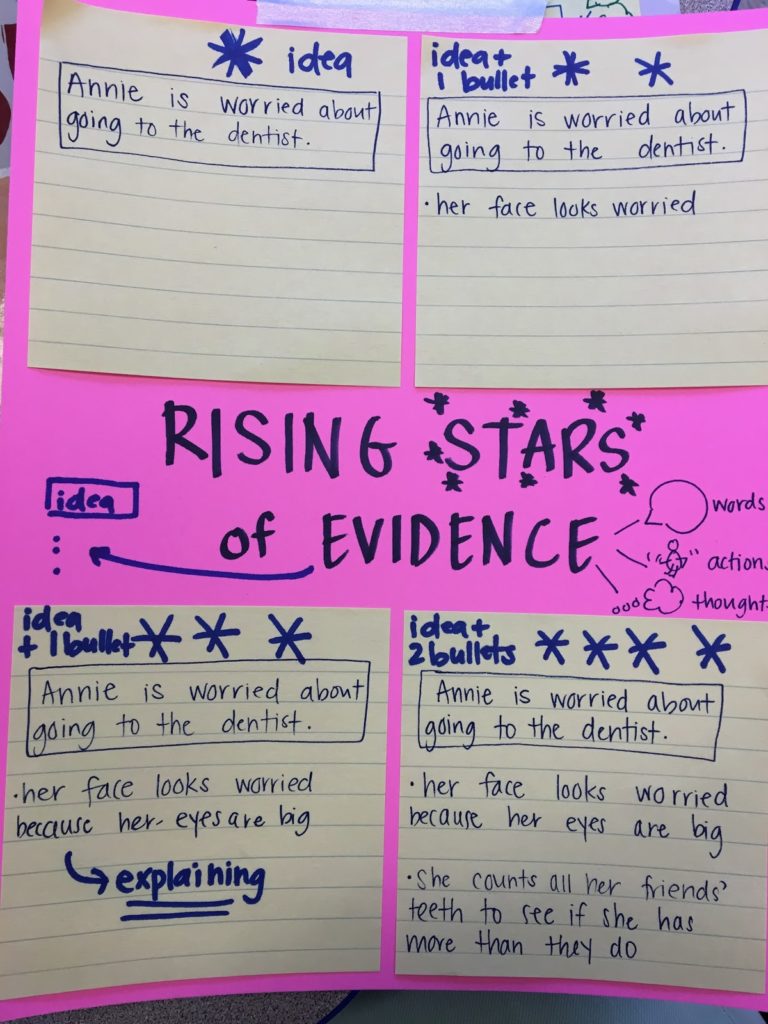 idea
Annie is worried about
going to the dentist.
idea +
1 bullet
Annie is worried about
going to the dentist.
· her face looks worried
RISING STARS
of EVIDENCE
idea
words
action
thought
idea
+ 1 bullet
Annie is worried about
going to the dentist.
· her face looks worried
because her eyes are big
explaining
idea +
2 bullets
Annie is worried about
going to the dentist.
· her face looks worried
because her eyes are big
· She counts all her friends'
teeth to see if she has
more than they do